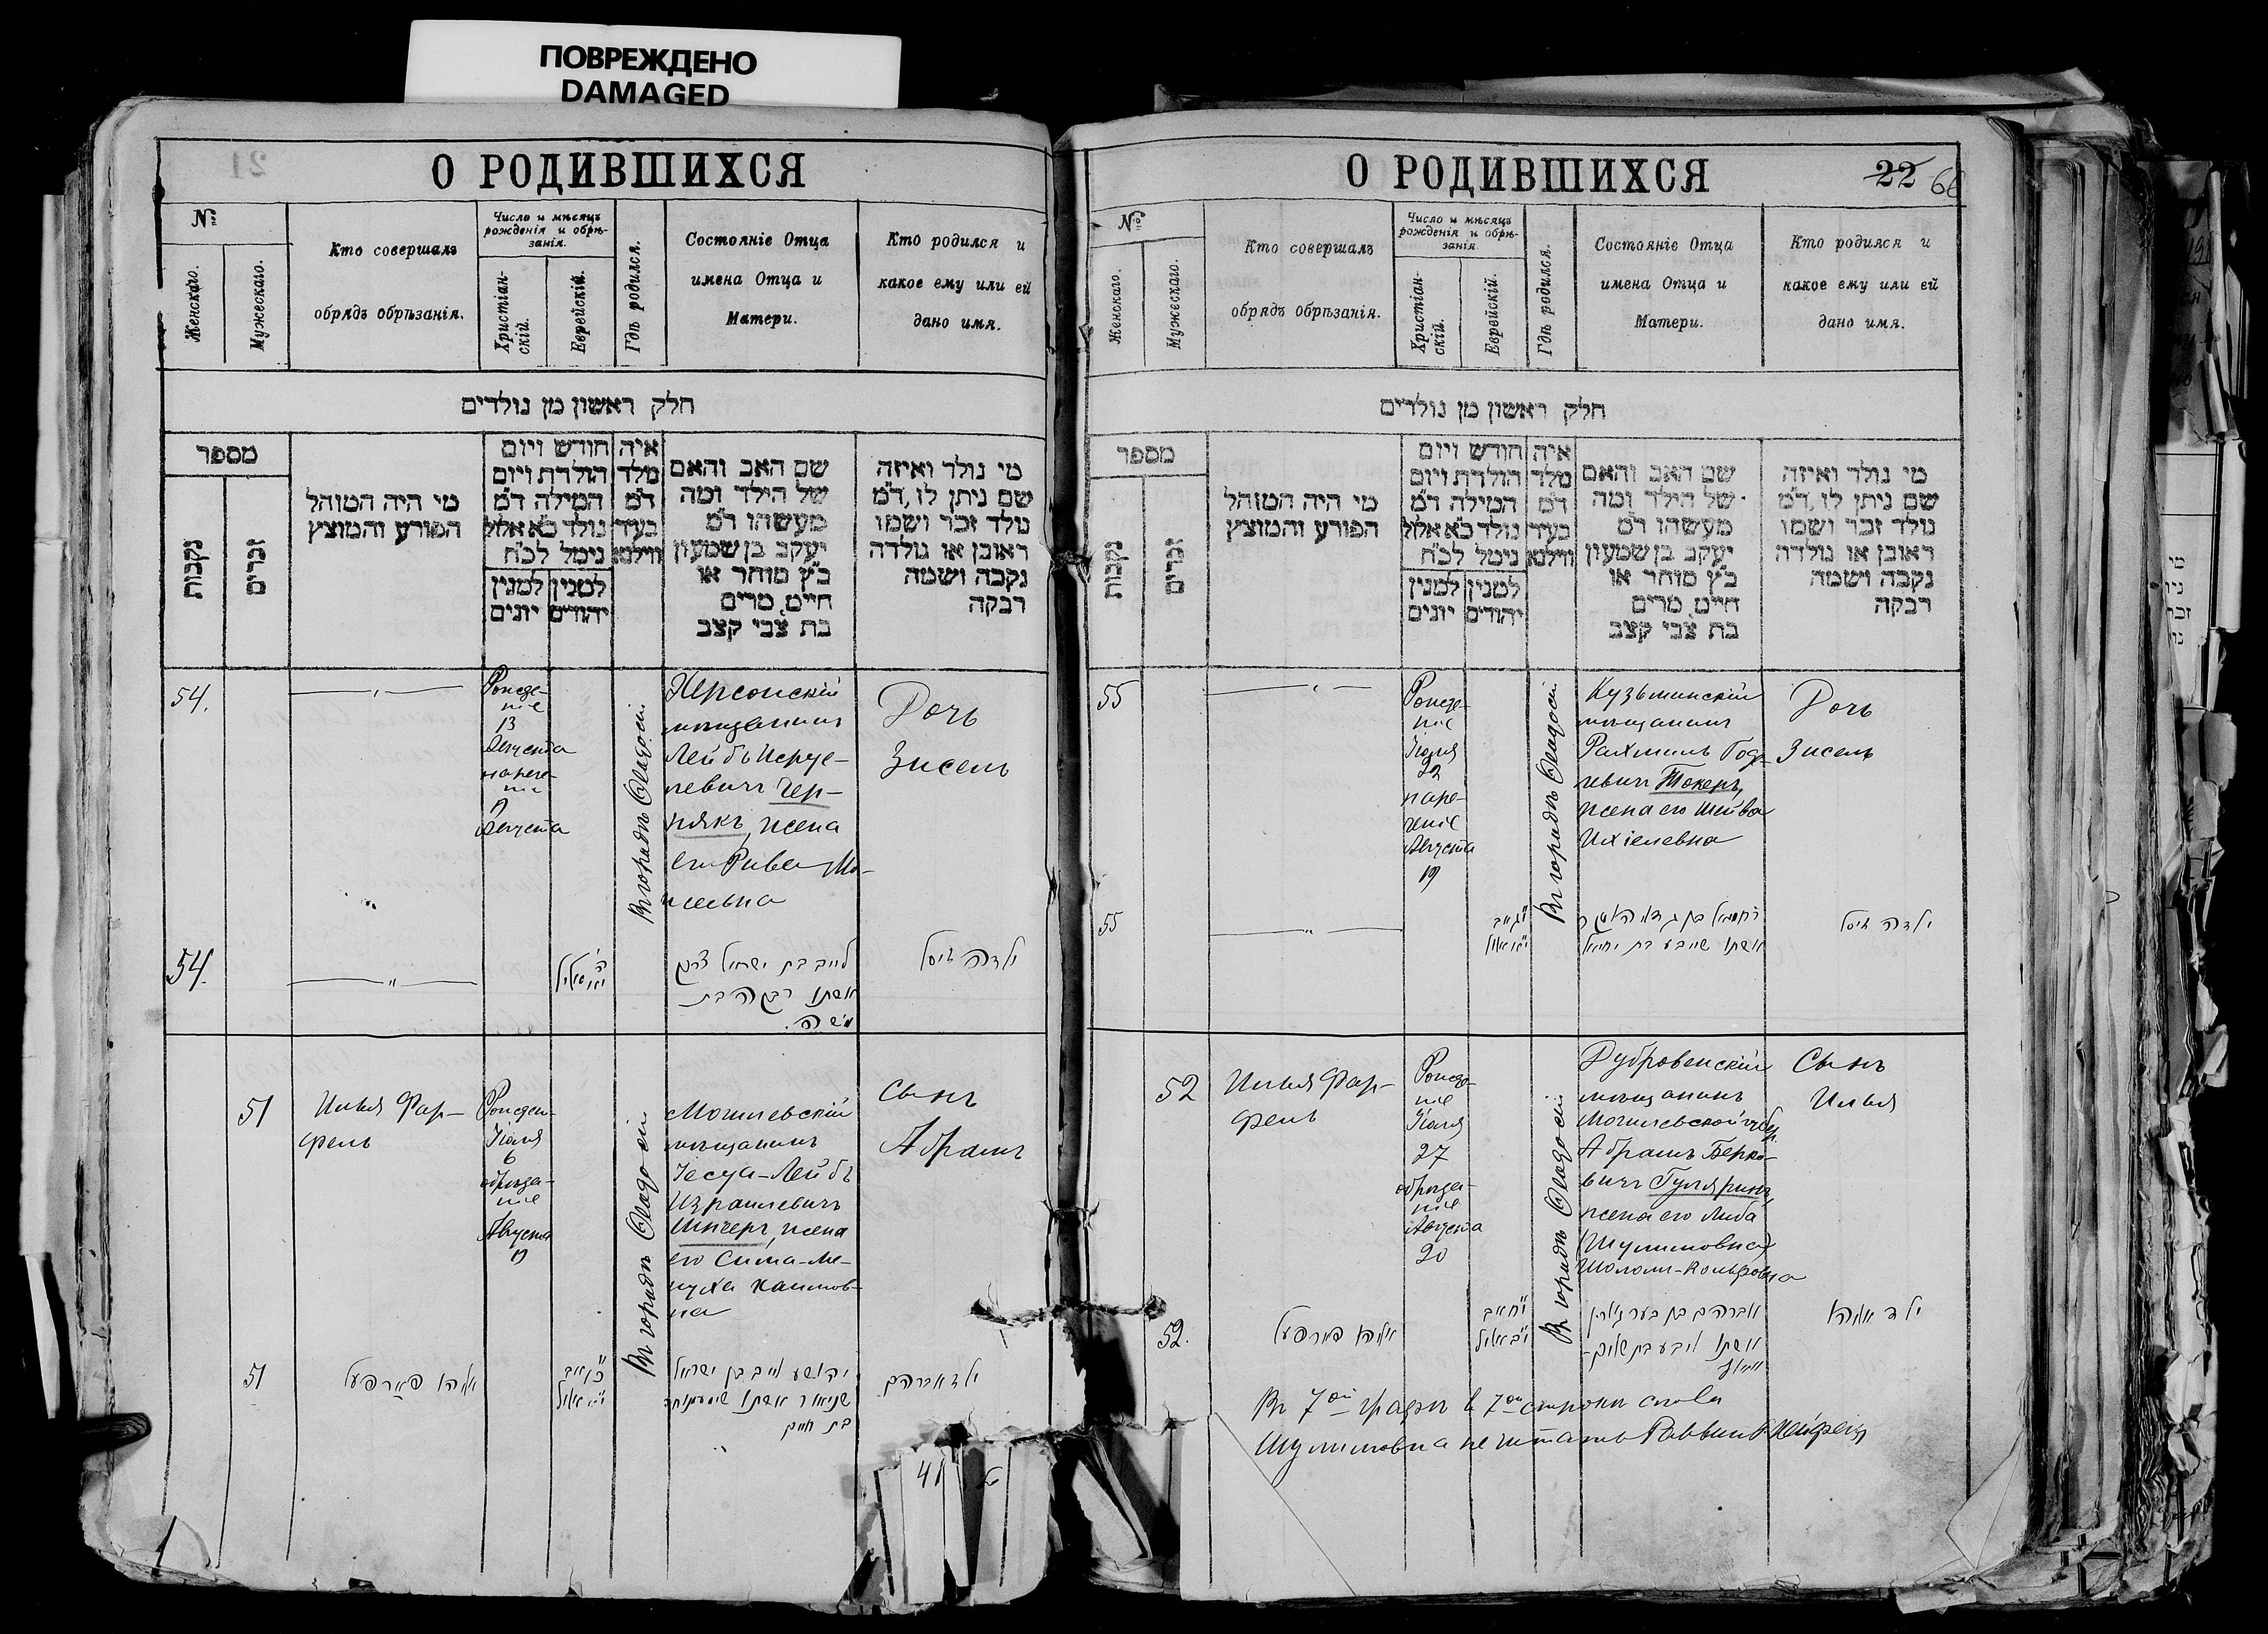 ПОВРЕЖДЕНО
DAMAGED
О РОДИВШИХСЯ
№
Женскаго.
Мужескаго.
Кто совершалъ
обрядъ обрѣзанія.
Число и мѣсяцъ
рожденія и обрѣ-
занія.
Христіан-
скій.
Еврейскій.
Гдѣ родился.
Состояніе Отца
имена Отца и
Матери.
Кто родился и
какое ему или ей
дано имя.
חלק ראשון מן נולדים
מספר
נקבות
זכרים
מי היה המוהל
הפורע והמוצץ
חודש ויום
הולדת ויום
המילה ד״מ
נולד כ״א אלול
נימל לכ״ח
למנין למנין
יהודים יונים
איה
מלד
ד״מ
בעיר
ווילנא
שם האב והאם
של הילד ומה
מעשהו ד״מ
יעקב בן שמעון
כ״ץ סוחר או
חיים, מרים
בת צבי קצב
מי נולד ואיזה
שם ניתן לו, ד״מ
נולד זכר ושמו
ראובן או נולדה
נקבה ושמה
רבקה
54.
Рожде-
ніе
13
Августа
нарече-
ніе
Августа
Въ городѣ Ѳеодосіи
Херсонскій
мѣщанинъ
Лейбъ Исруе-
левичъ Чер-
някъ, жена
его Рива Мо-
исеевна
Дочь
Зисель
54.
לייב בת ישראל
אשתו רבקה בת
משה.
ילדה זיסל
51
Илья Фар-
фель
Рожден-
Іюля
6
обрѣза-
ніе
Августа
Въ городѣ Ѳеодосіи
Могилевскій
мѣщанинъ
Іесуа-Лейбъ
Израилевичъ
Шнееръ, жена
его Сима-Ме-
нуха Хаимов-
на
Сынъ
Абрамъ
51
אליהו פארפעל
יהושע לייב בן ישראל
שניאור אשתו
בת חיים
ילד אברהם
О РОДИВШИХСЯ
22 66
№
Женскаго.
Мужескаго.
Кто совершалъ
обрядъ обрѣзанія.
Число и мѣсяцъ
рожденія и обрѣ-
занія.
Христіан-
скій.
Еврейскій.
Гдѣ родился.
Состояніе Отца
имена Отца и
Матери.
Кто родился и
какое ему или ей
дано имя.
חלק ראשון מן נולדים
מספר
נקבות
זכרים
מי היה המוהל
הפורע והמוצץ
חודש ויום
הולדת ויום
המילה ד״מ
נולד כ״א אלול
נימל לכ״ח
למנין למנין
יהודים יונים
איה
מלד
ד״מ
בעיר
ווילנא
שם האב והאם
של הילד ומה
מעשהו ד״מ
יעקב בן שמעון
כ״ץ סוחר או
חיים, מרים
בת צבי קצב
מי נולד ואיזה
שם ניתן לו, ד״מ
נולד זכר ושמו
ראובן או נולדה
נקבה ושמה
רבקה
55
Рожде-
ніе
Іюля
наре-
ченіе
Августа
19
Въ городѣ Ѳеодосіи
Кузьминскій
мѣщанинъ
Рахмиль Год-
левичъ Токеръ,
жена его Шейва
Ихіелевна
Дочь
Зисель
55
אשתו שייבע בת יחיאל
ילדה זיסל
52
Илья Фар-
фель
Рожде-
ніе
Іюля
27
обрѣза-
ніе
Августа
20
Въ городѣ Ѳеодосіи
Дубровенскій
мѣщанинъ
Могилевской губ.
Абрамъ Берко-
вичъ Гуляринъ,
жена его Либа
(Шулимовна)
Шолом-Вольфовна
Сынъ
Илья
52.
אליהו פארפעל
אברהם בן בער
אשתו ליבע בת שלום-
וואלף
ילד אליהו
Въ 7ой графѣ в 7ой строкѣ слова
Шулимовна не читать Раввинъ